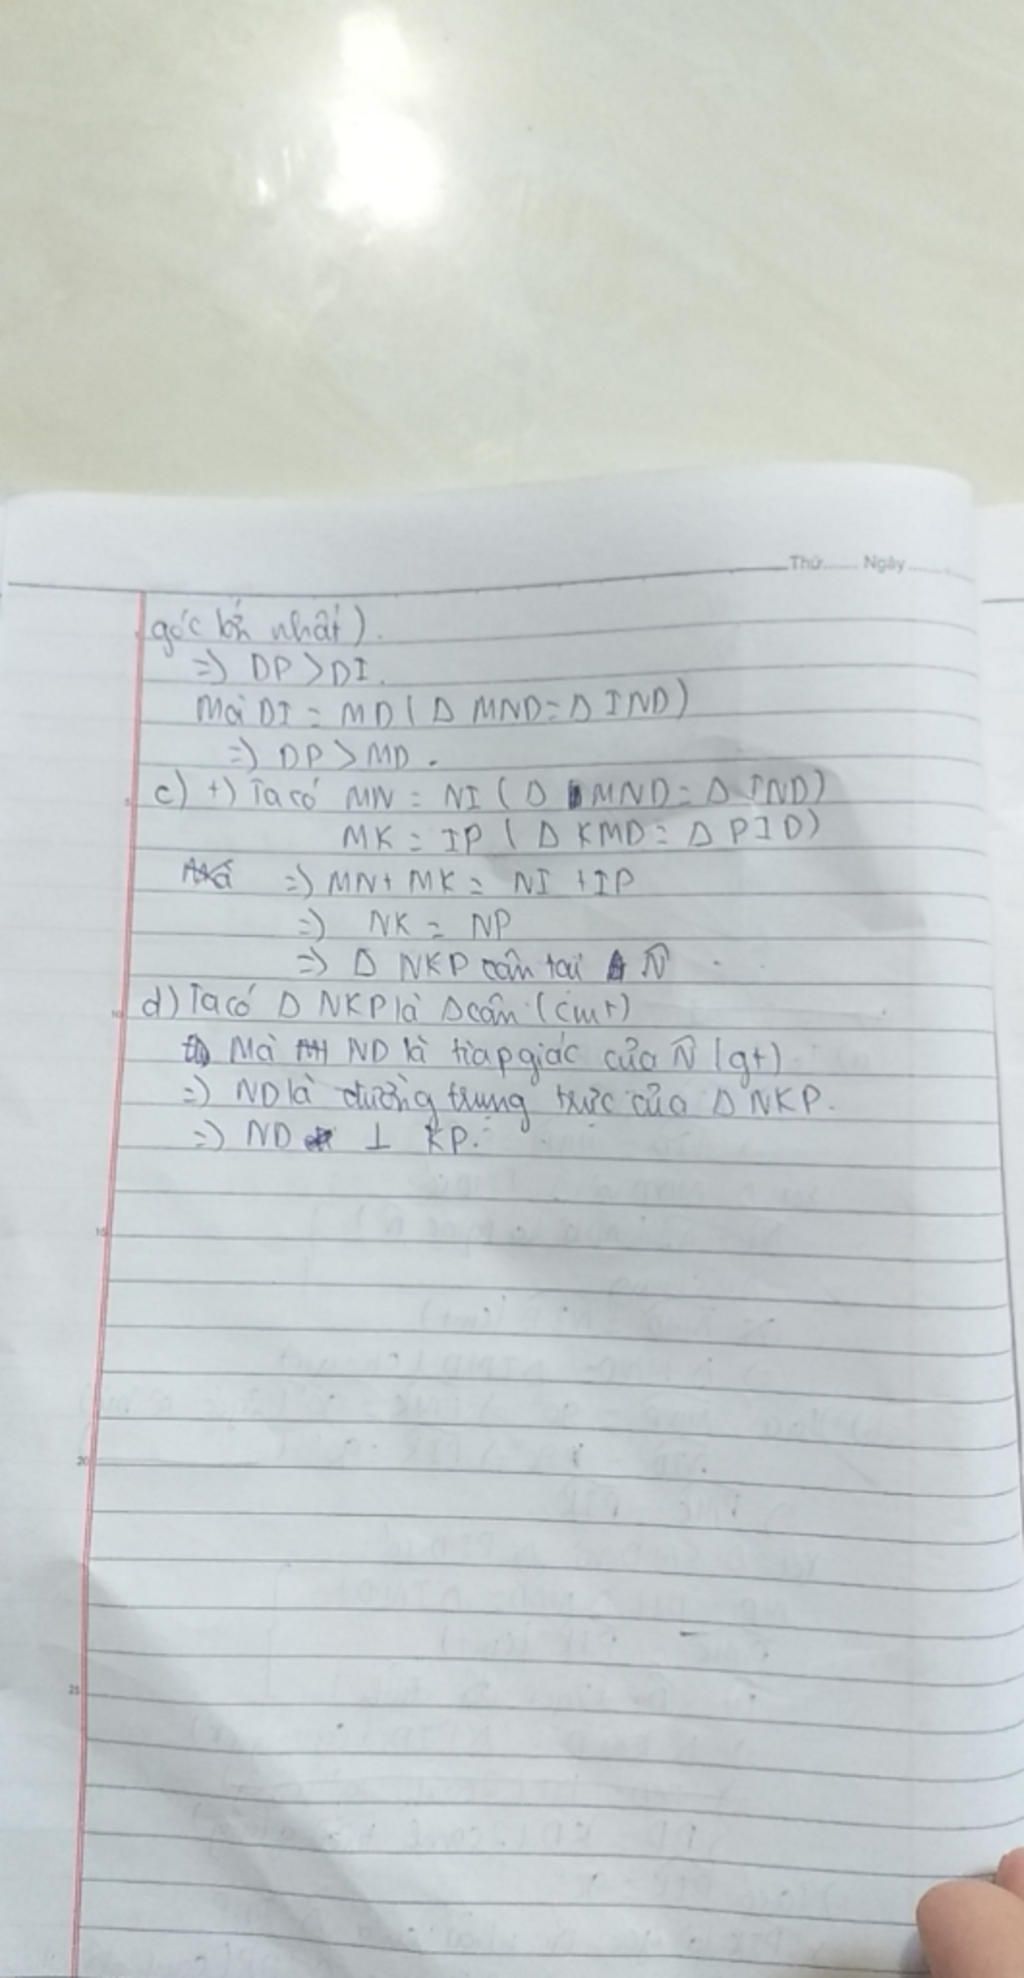 Thứ...... Ngày......
góc lớn nhất).
=> DP > DI.
Mà DI = MD (Δ MND = Δ IND)
=> DP > MD.
c) +) Ta có MN = NI (Δ MND = Δ IND)
MK = IP (Δ KMD = Δ PID)
=> MN + MK = NI + IP
=> NK = NP
=> Δ NKP cân tại N̂
d) Ta có Δ NKP là Δ cân (cmt)
Mà ND là tiapgiác của N̂ (gt)
=> ND là đường trung trực của Δ NKP.
=> ND ⊥ KP.
5
10
15
20
25